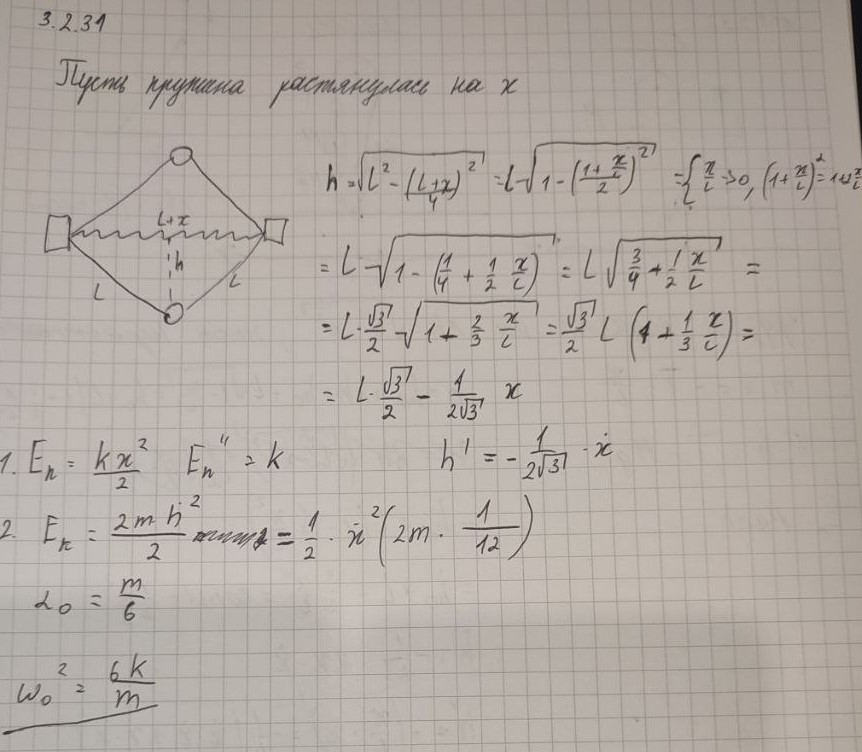 3.2.31
Пусть пружина растянулась на x
h = √(L² - ((L+x)/4)²) = L √(1 - ((1+x/L)/2)²) = { x/L → 0, (1+x/L)² = 1+2x/L
L+x
h
L L
= L √(1 - (1/4 + 1/2 x/L)) = L √(3/4 + 1/2 x/L) =
= L·√3/2 √(1 + 2/3 x/L) = √3/2 L (1 + 1/3 x/L) =
= L·√3/2 - 1/(2√3) x
1. Eп = kx²/2 Eп'' = k h' = - 1/(2√3) · ẋ
2. Eк = 2mḣ²/2 = 1/2 · ẋ² (2m · 1/12)
α₀ = m/6
ω₀² = 6k/m